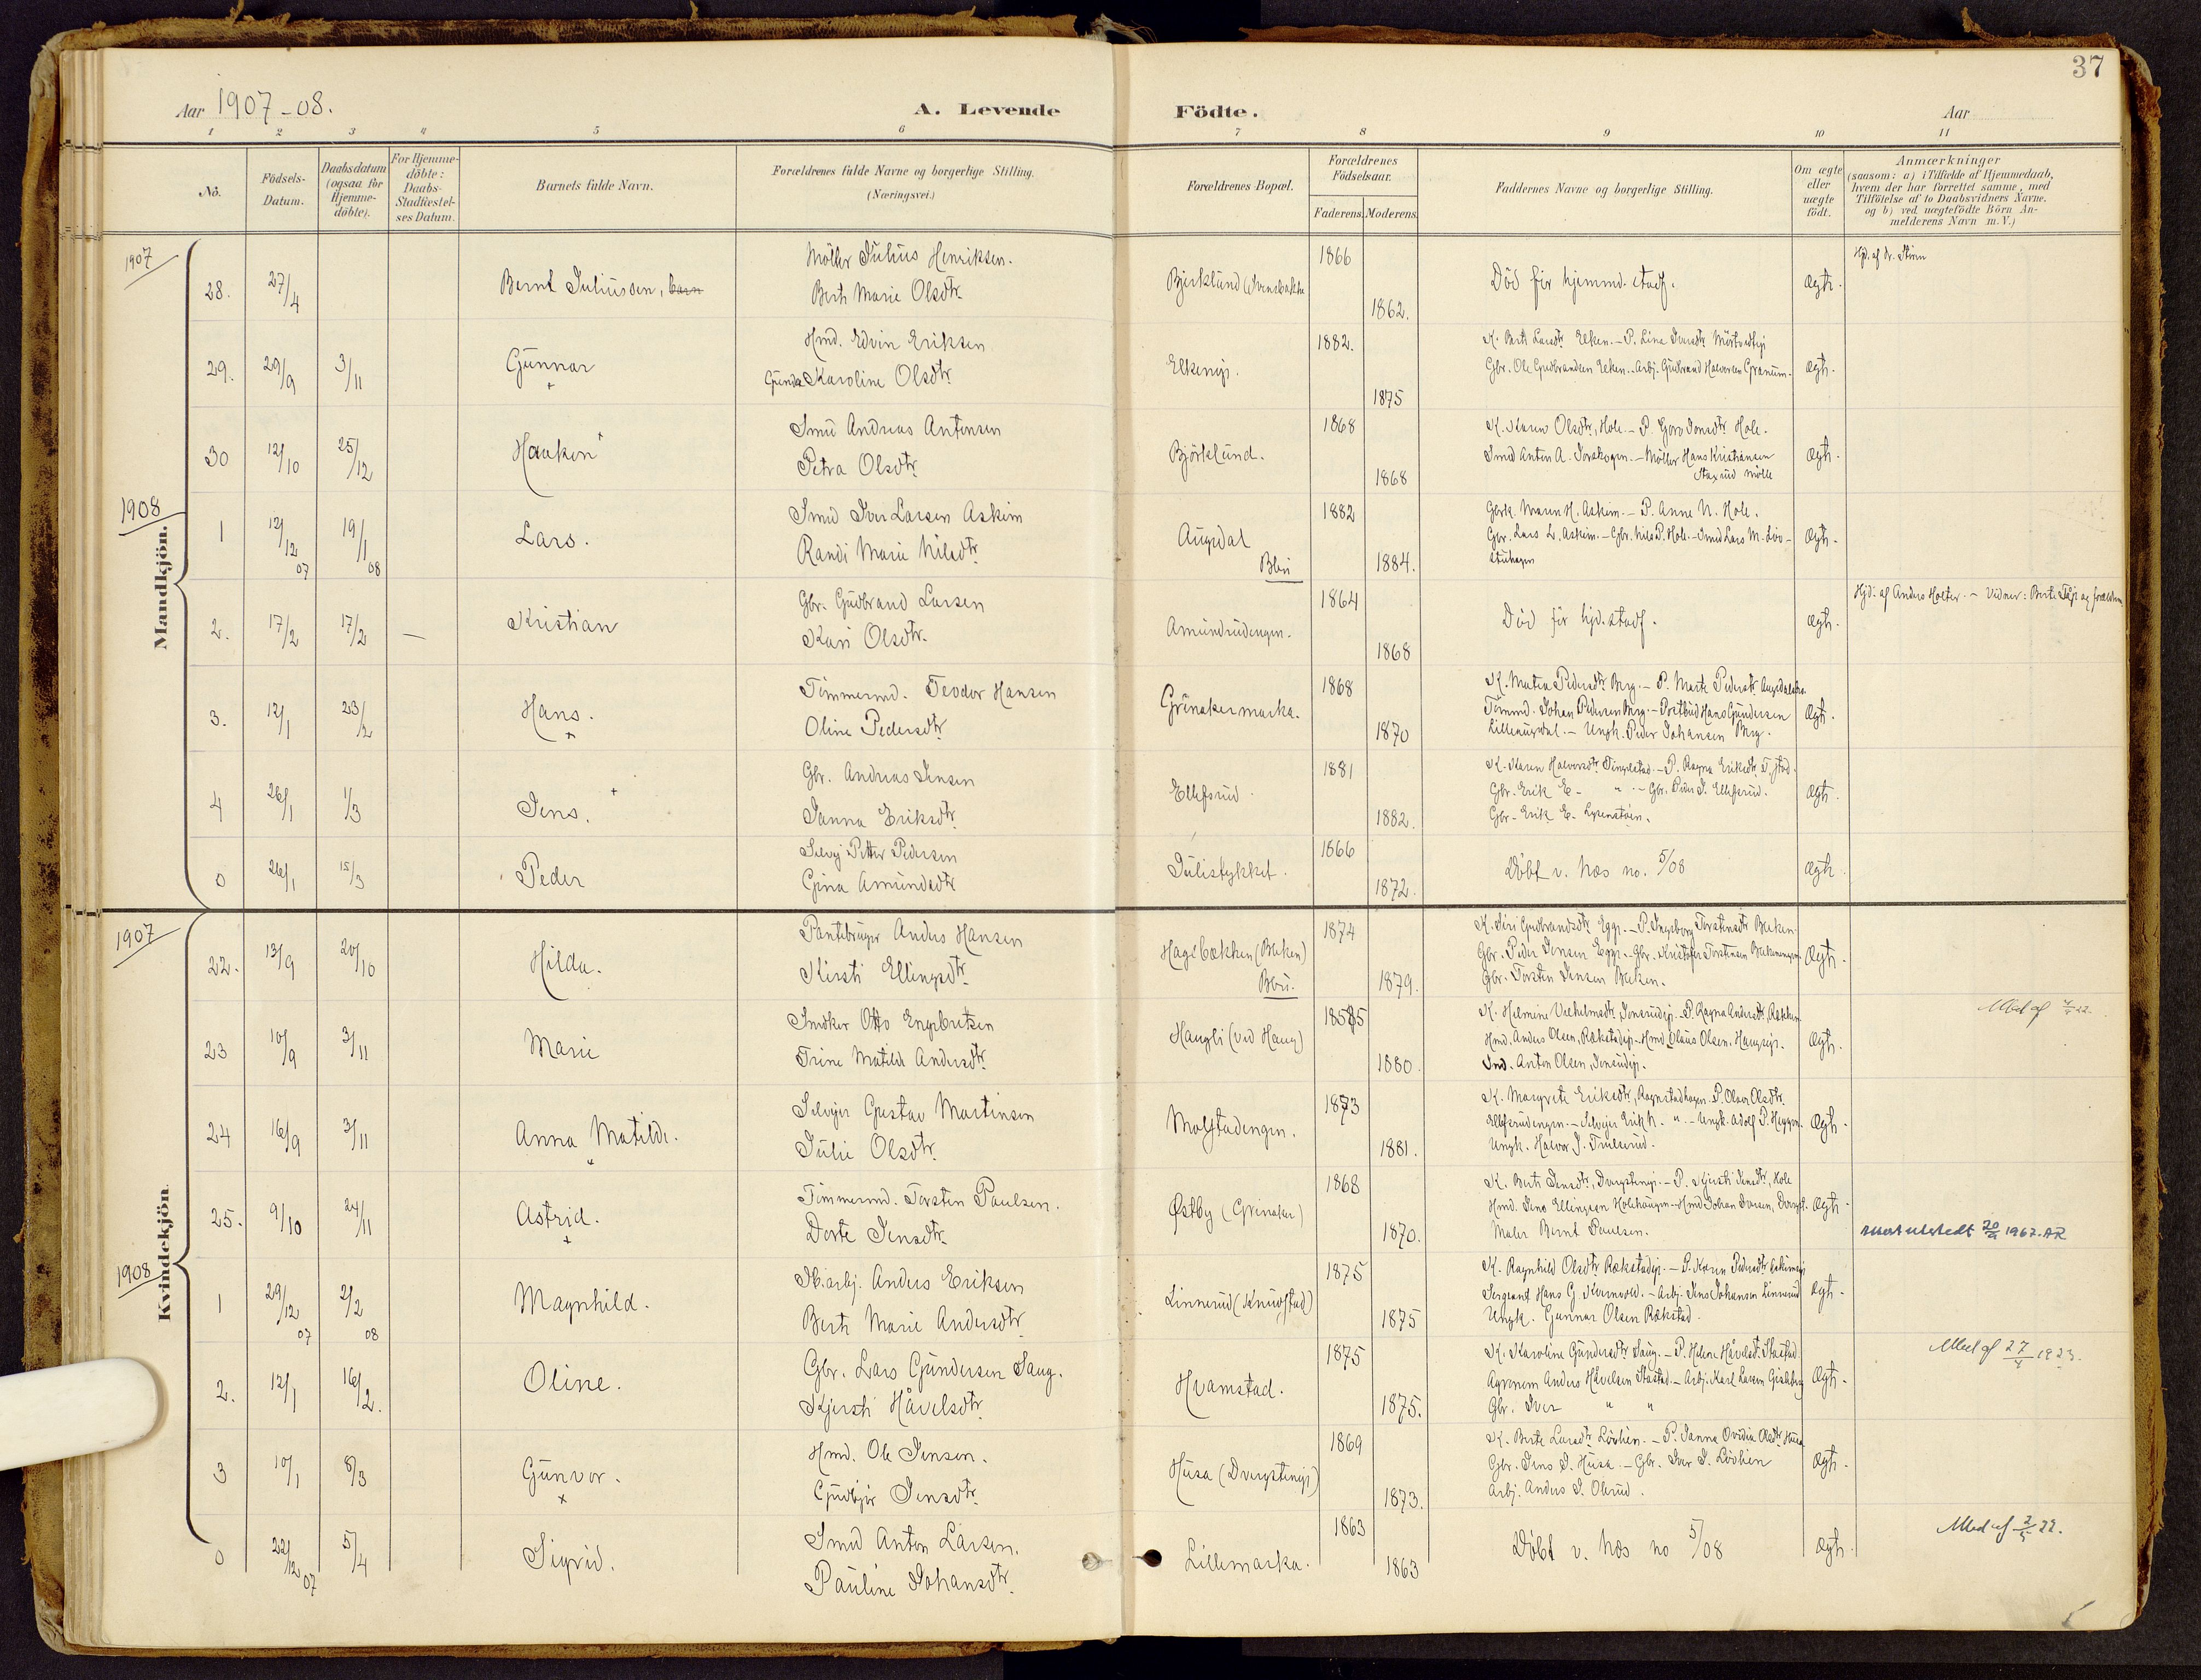 37
Aar 1907-08.
A. Levende Födte.
Aar
1 2 3 4 5 6 7 8 9 10 11
No.
Födsels-Datum.
Daabsdatum (ogsaa for Hjemme-döbte).
For Hjemme-döbte: Daabs-Stadfestel-ses Datum.
Barnets fulde Navn.
Forældrenes fulde Navne og borgerlige Stilling. (Næringsvei.)
Forældrenes Bopæl.
Forældrenes Födselsaar.
Faderens. Moderens.
Faddernes Navne og borgerlige Stilling.
Om ægte eller uægte födt.
Anmærkninger (saasom: a) i Tilfælde af Hjemmedaab, hvem der har forrettet samme, med Tilföielse af to Daabsvidners Navne, og b) ved uægtefödte Börn An-melderens Navn m. V.)
Mandkjön.
1907
28. 27/4 Bernt Juliussen, barn
Möller Julius Henriksen.
Berte Marie Olsdtr.
1866
1862.
Död før hjemmd. stadf.
Ægte.
29. 29/9 3/11 Gunnar
Hmd. Edvin Eriksen
Gunda Karoline Olsdtr.
Elkeneje.
1882.
1875
K. Berte Larsdtr. Elken. - P. Lina
Gbr. Ole Gudbrandsen Elken. - Arbj. Gudbrand Halvorsen Granum.
Ægte.
30 12/10 25/12 Haakon
Smed Andreas Antonsen
Petra Olsdtr.
Björklund.
1868
1868
K. Karen Olsdtr., Hole. - P. Goro Jonsdtr. Hole.
Smed Anton A. - Möller Hans Kristiansen
mölle
Ægte.
1908
1 12/12 07 19/1 08 Lars.
Smed Iver Larsen Askim
Randi Marie Nilsdtr.
Augedal
Bbu
1882
1884.
Gbrk. Maren H. Askim. - P. Anne N. Hole.
Gbr. Lars L. Askim. - Gbr. Nils P. Hole. - Smed Lars M. Löv-
stuhagen
Ægte.
2. 17/2 17/2 - Kristian
Gbr. Gudbrand Larsen
Kari Olsdtr.
Amundrudengen.
1864
1868
Död før hjd. stadf.
Ægte.
Hjd. af Anders Holter. - Vidner: Berte og forældrene
3. 12/1 23/2 Hans.
Tömmermd. Teodor Hansen
Oline Pedersdtr.
Grinakermarka.
1868
1870
K. Matea Pedersdtr. Berg. - P. Marte Pedersdtr.
Tömmd. Johan Pedersen Berg. - Postbud Hans Gundersen
Lilleaugedal. - Ungk. Peder Johansen Berg.
Ægte.
4 26/1 1/3 Jens.
Gbr. Andreas Jensen
Janna Eriksdtr.
Ellefsrud.
1881
1882.
K. Karen Halvorsdtr. Tingelstad. - P. Ragna Eriksdtr. T.stad.
Gbr. Erik E. - " - Gbr. Iver J. Ellefsrud.
Gbr. Erik E.
Ægte.
0 26/1 15/3 Peder
Selvej. Petter Pedersen
Gina Amundsdtr
Julistykket.
1866
1872.
Döbt v. Næs no. 5/08
Ægte.
Kvindekjön.
1907
22. 13/9 20/10 Hilda.
Pantebruger Anders Hansen
Kirsti Ellingsdtr.
Hagebakken (Bleken)
Bbu.
1874
1879.
K. Siri Gudbrandsdtr. Egge. - P. Ingeborg Torstensdtr. Bleken.
Gbr. Peder Jensen Egge. - Gbr. Kristofer Torstensen
Gbr. Torsten Jensen Bleken.
Ægte.
23 10/9 3/11 Marie
Smdker Otto Engebretsen
Trine Matilde Andersdtr.
Haugli (ved Haug)
1880.
K. Helmine Vilhelmsdtr., - P. Ragna Andersdtr.,
Hmd. Anders Olsen, Rækstadeje. - Hmd. Olaus Olsen, Haugseje.
Smd. Anton Olsen,
Ægte.
24 16/9 3/11 Anna Matilde.
Selvejer Gustav Martinsen
Julie Olsdtr.
Molstadengen.
1873
1881.
K. Margrete Eriksdtr., Rognstadhagen. P. Olava Olsdtr.
Ellefsrudengen. - Selvejer Erik N. " - Ungk. Adolf P. Heggen.
Ungk. Halvor J. Trulserud.
Ægte.
25. 9/10 24/11 Astrid.
Tömmermd. Torsten Paulsen.
Dorte Jensdtr.
Østby (Grinaker)
1868
1870.
K. Berte Jensdtr., - P. Kjersti Jensdtr., Hole
Hmd. Jens Ellingsen Holehaugen. - Hmd Johan Iversen,
Maler Bernt Paulsen.
Ægte.
1967. AR
1908
1 29/12 07 2/2 08 Magnhild.
Anders Eriksen
Berte Marie Andersdtr.
Linnerud (Knudstad)
1875
1875
K. Ragnhild Olsdtr. Rækstadeje. - P. Karen Pedersdtr.
Sergeant Hans G. Kvernvold. - Arbj. Jens Johansen Linnerud
Ungk. Gunnar Olsen Rækstad.
Ægte.
2. 12/1 16/2. Oline.
Gbr. Lars Gundersen Saug.
Kjersti Håvelsdtr.
Hvamstad.
1875
1875.
K. Karoline Gundersdtr. Saug. - P. Helene Håvelsdtr. Stastad.
Agronom Anders Håvelsen Stastad. - Arbj. Karl Larsen
Gbr. Iver " "
Ægte.
27 1923.
3 10/1 8/3 Gunvor.
Hmd. Ole Jensen.
Gudbjör Jensdtr.
Husa (Dvergsteneje)
1869
1873.
K. Berte Larsdtr. Lövlien. - P. Janna Ovidia Olsdtr. Husa
Gbr. Jens J. Husa. - Gbr. Iver J. Lövlien
Arbj. Anders J. Olsrud.
Ægte.
0 22/12 07 5/4 Sigrid.
Smed Anton Larsen.
Pauline Johansdtr.
Lillemarka.
1863
1863
Döbt v. Næs no 5/08
Ægte.
2/5 22.